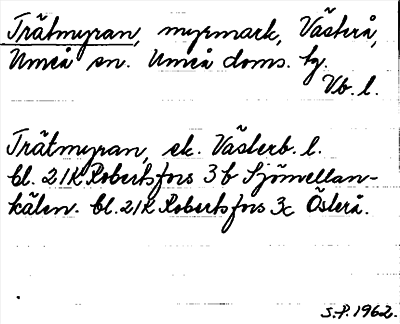 Trätmyran, myrmark, Västerå,
Umeå sn. Umeå doms. tg.
Vb. l.
Trätmyran, ek. Västerb. l.
bl. 21K Robertsfors 3b Sjömellan-
kälen. bl. 21K Robertsfors 3c Österå.
S.P. 1962.